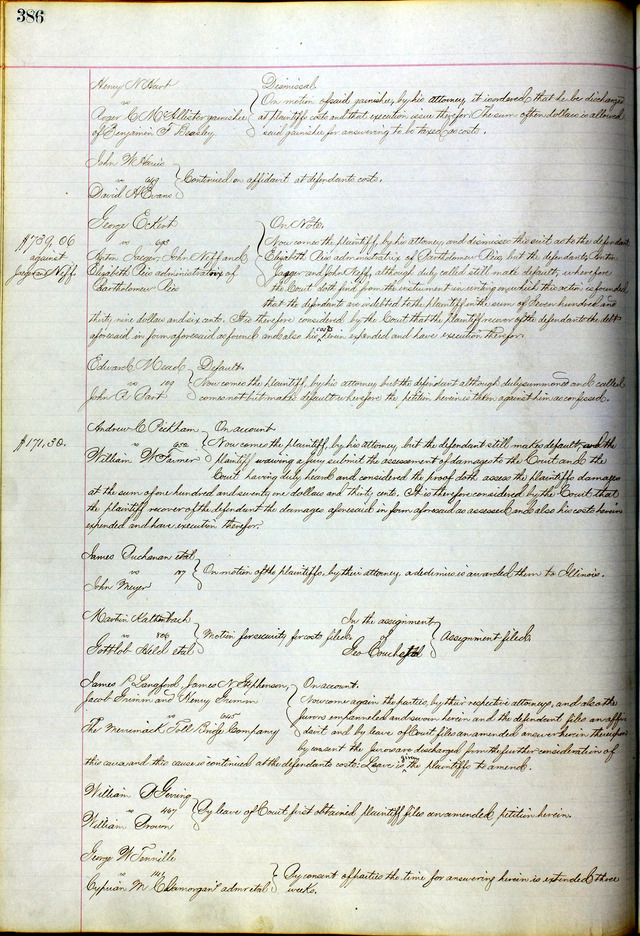 386
Henry N Hart
vs
Roger C McAllister garnishee
of Benjamin F Beasley
Dismissal
On motion of said garnishee, by his attorney, it is ordered that he be discharged
at plaintiffs costs and that execution issue therefor. The sum of ten dollars is allowed
said garnishee for answering to be taxed as costs.
John W Harris
vs 649
David H Evans
Continued on affidavit at defendants costs.
$739.06
against
Jaeger and Neff.
George Eckert
vs
Jaeger, John Neff and
Elizabeth Reis administratrix of
Bartholomew Reis
On Note.
Now comes the plaintiff, by his attorney and dismisses this suit as to the defendant
Elizabeth Reis administratrix of Bartholomew Reis, but the defendants,
Jaeger and John Neff, although duly called still make default; wherefore
the Court doth find from the instrument in writing on which this action is founded
that the defendants are indebted to the plaintiff in the sum of Seven hundred and
thirty nine dollars and six cents. It is therefore considered by the Court that the plaintiff recover of the defendants the debt
aforesaid in form aforesaid as found and also his costs herein expended and have execution therefor.
Edward Mead
vs 109
John F
Default.
Now comes the plaintiff, by his attorney but the defendant although duly summoned and called
comes not but makes default wherefore the petition herein is taken against him as confessed.
$171,30.
Andrew C Peckham
vs
William W Farmer
On account
Now comes the plaintiff, by his attorney, but the defendant still makes default and the
plaintiff waiving a jury submit the assessment of damages to the Court and the
Court having duly heard and considered the proof doth assess the plaintiffs damages
at the sum of one hundred and seventy one dollars and thirty cents. It is therefore considered by the Court that
the plaintiff recover of the defendant the damages aforesaid in form aforesaid as assessed and also his costs herein
expended and have execution therefor.
James Buchanan et al
vs
John Meyer
On motion of the plaintiffs, by their attorney, a dedimus is awarded them to Illinois.
Martin Kaltenbach
vs 806
Gottlob Held et al
Motion for security for costs filed.
In the assignment
of
Geo Couch et al
Assignment filed.
James P Langford, James N Stephenson,
Jacob Grimm and Henry Grimm
vs
The Merrimack Toll Bridge Company
On account.
Now come again the parties, by their respective attorneys, and also the
Jurors empannelled and sworn herein and the defendant files an affi-
davit and by leave of Court files an amended answer herein thereupon
by consent the Jurors are discharged from the further consideration of
this cause and this cause is continued at the defendants costs. Leave is given the plaintiffs to amend.
William A Gerring
vs 467
William Brown
By leave of Court first obtained plaintiff files an amended petition herein.
George W Tennille
vs
Cyprian M Clamorgans admr et al
By consent of parties the time for answering herein is extended three
weeks.